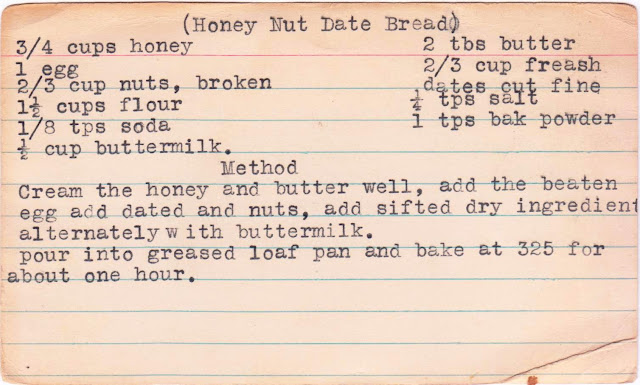 (Honey Nut Date Bread)
3/4 cups honey 2 tbs butter
1 egg 2/3 cup freash
2/3 cup nuts, broken dates cut fine
1½ cups flour ¼ tps salt
1/8 tps soda 1 tps bak powder
½ cup buttermilk.
Method
Cream the honey and butter well, add the beaten
egg add dated and nuts, add sifted dry ingredient
alternately with buttermilk.
pour into greased loaf pan and bake at 325 for
about one hour.